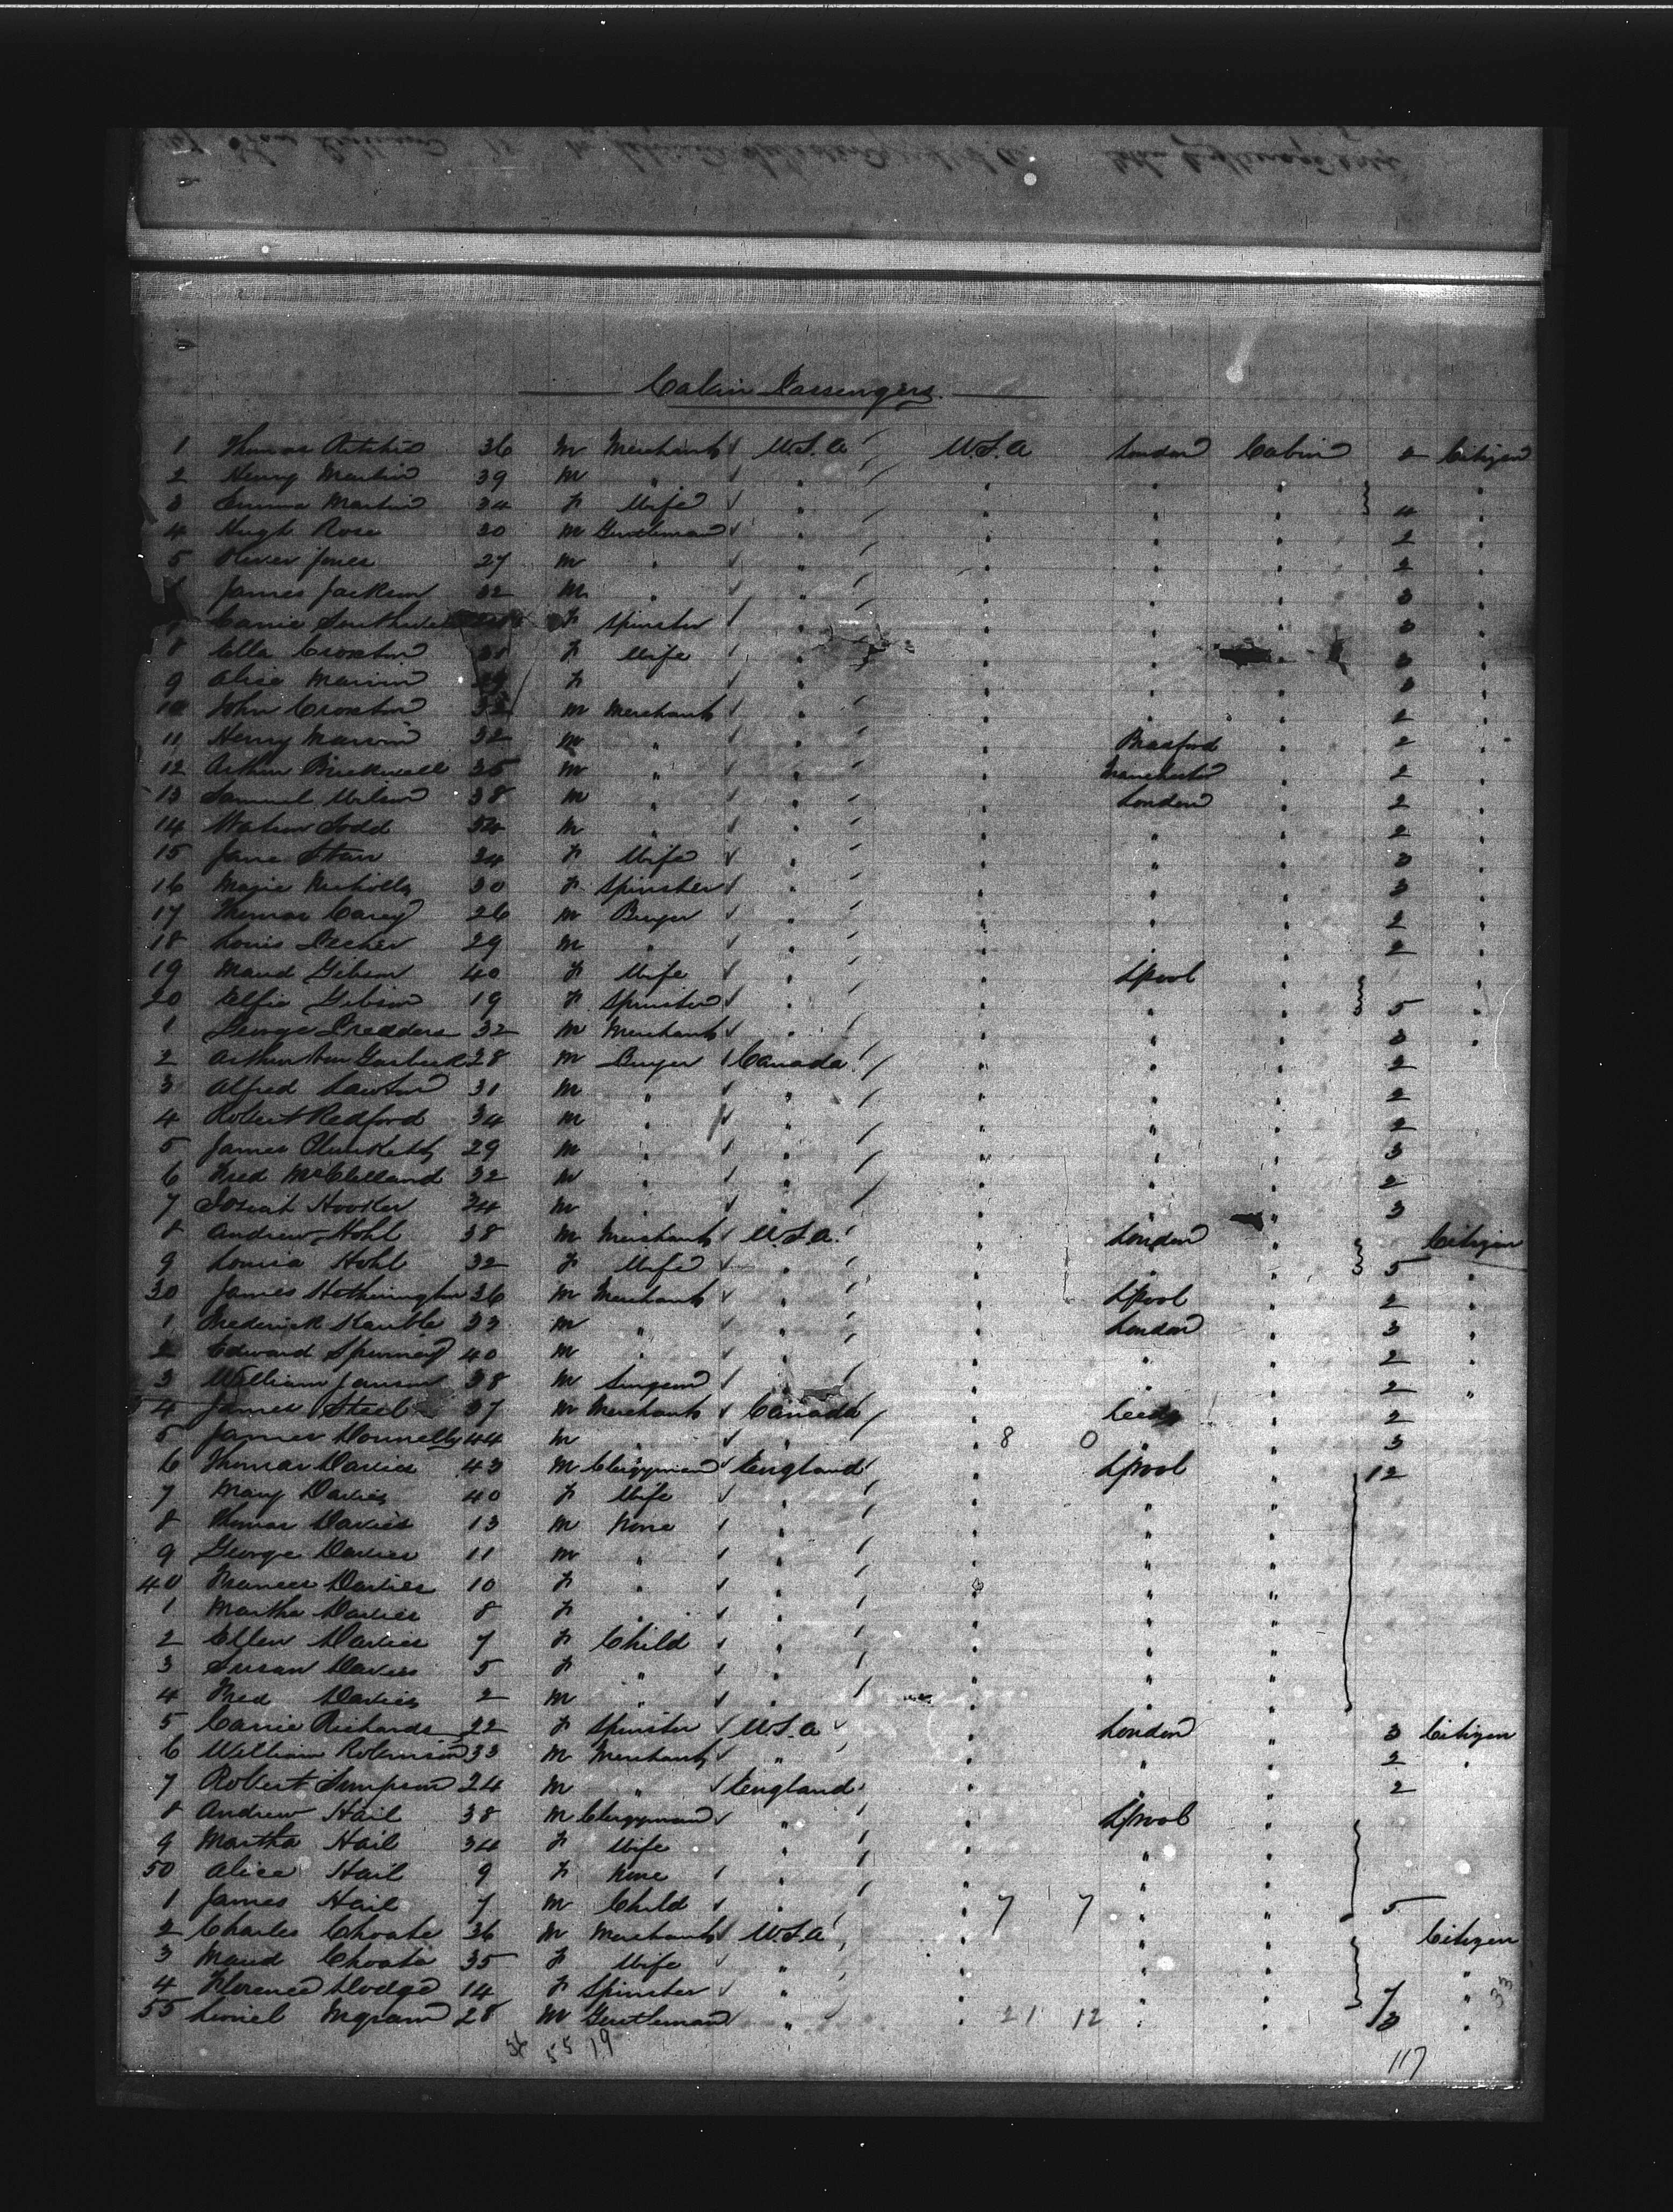 Cabin Passengers.
1 Thomas Ritchie 36 M Merchant U.S.A U.S.A London Cabin 2 Citizen
2 Henry Martin 39 M " " " " " "
3 Emma Martin 34 F Wife " " " " 4 "
4 Hugh Rose 30 M Gentleman " " " " 2 "
5 Oliver Jones 27 M " " " " " 2 "
James Jackson 32 M " " " " " 3 "
Carrie F Spinster " " " " 3 "
8 Ella Croxton 31 F Wife " " " " 3 "
9 Alice Marvin F " " " " 3 "
10 John Croxton 32 M Merchant " " " " 2 "
11 Henry Marvin 32 M " " " Bradford " 2 "
12 Arthur Bicknell 35 M " " " Manchester " 2 "
13 Samuel Wilson 38 M " " " London " 2 "
14 Todd 34 M " " " " " 2 "
15 Jane Starr 24 F Wife " " " " 3 "
16 Magie Nicholls 30 F Spinster " " " " 3 "
17 Thomas Carey 26 M Buyer " " " " 2 "
18 Louis 29 M " " " " " 2 "
19 Maud Gibson 40 F Wife " " Lpool " "
20 Effie Gibson 19 F Spinster " " " " 5 "
1 George 32 M Merchant " " " " 3 "
2 Arthur 28 M Buyer Canada " " " 2
3 Alfred Lawton 31 M " " " " " 2
4 Robert Redford 34 M " " " " " 2
5 James Plunkett 29 M " " " " " 3
6 Fred McClelland 32 M " " " " " 2
7 Josiah Hooker 34 M " " " " " 3
8 Andrew Hohl 38 M Merchant U.S.A. " London " Citizen
9 Louisa Hohl 32 F Wife " " " " 5 "
30 James Hetherington 36 M Merchant " " Lpool " 2 "
1 Frederick Kauble 33 M " " " London " 3 "
2 Edward Spurney 40 M " " " " " 2 "
3 William Janson 38 M Surgeon " " " " 2 "
4 James Steel 37 M Merchant Canada " Leeds " 2
5 James Donnelly 44 M " " " 8 0 " " 3
6 Thomas Davies 43 M Clergyman England " Lpool " 12
7 Mary Davies 40 F Wife " " " "
8 Thomas Davies 13 M None " " " "
9 George Davies 11 M " " " " "
40 Frances Davies 10 F " " " " "
1 Martha Davies 8 F " " " " "
2 Ellen Davies 7 F Child " " " "
3 Susan Davies 5 F " " " " "
4 Fred Davies 2 M " " " " "
5 Carrie Richards 22 F Spinster U.S.A " London " 3 Citizen
6 William Robinson 33 M Merchant " " " " 2 "
7 Robert Simpson 24 M " England " " " 2
8 Andrew Hail 38 M Clergyman " " Lpool "
9 Martha Hail 34 F Wife " " " "
50 Alice Hail 9 F None " " " "
1 James Hail 7 M Child " " 7 7 " " 5
2 Charles Choate 36 M Merchant U.S.A " " " Citizen
3 Maud Choate 35 F Wife " " " " "
4 Florence Dodge 14 F Spinster " " " " 7 "
55 Lionel Ingram 28 M Gentleman " " 21 12 " " 3 "
36 55 19
117
33